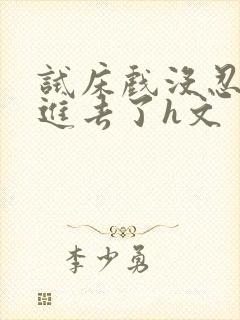 試床戲沒忍
進去了h文
李少勇